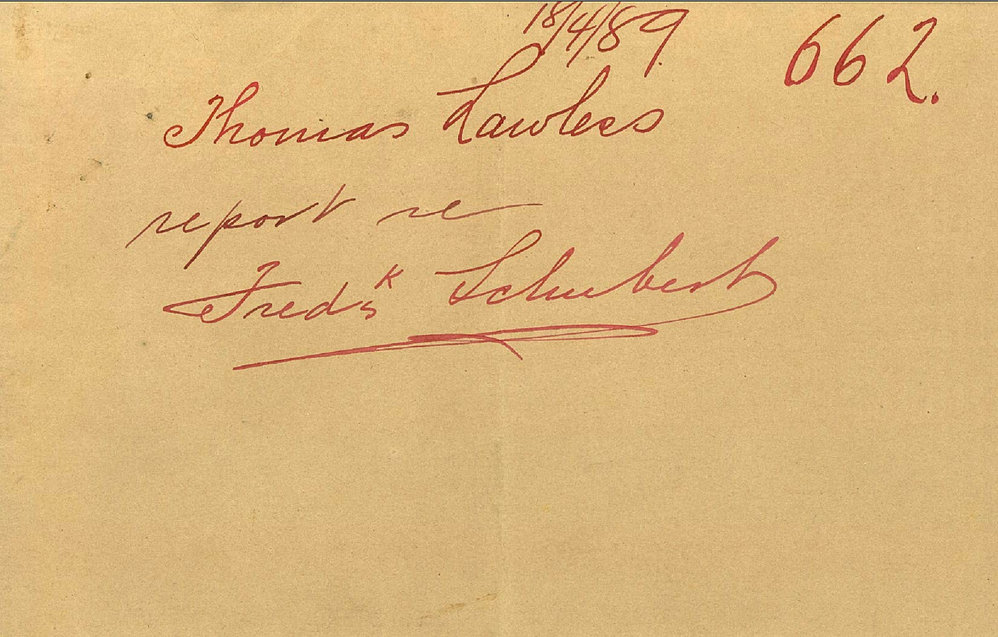 18/4/89.
662.
Thomas Lawless
report re
Fredk Schubert